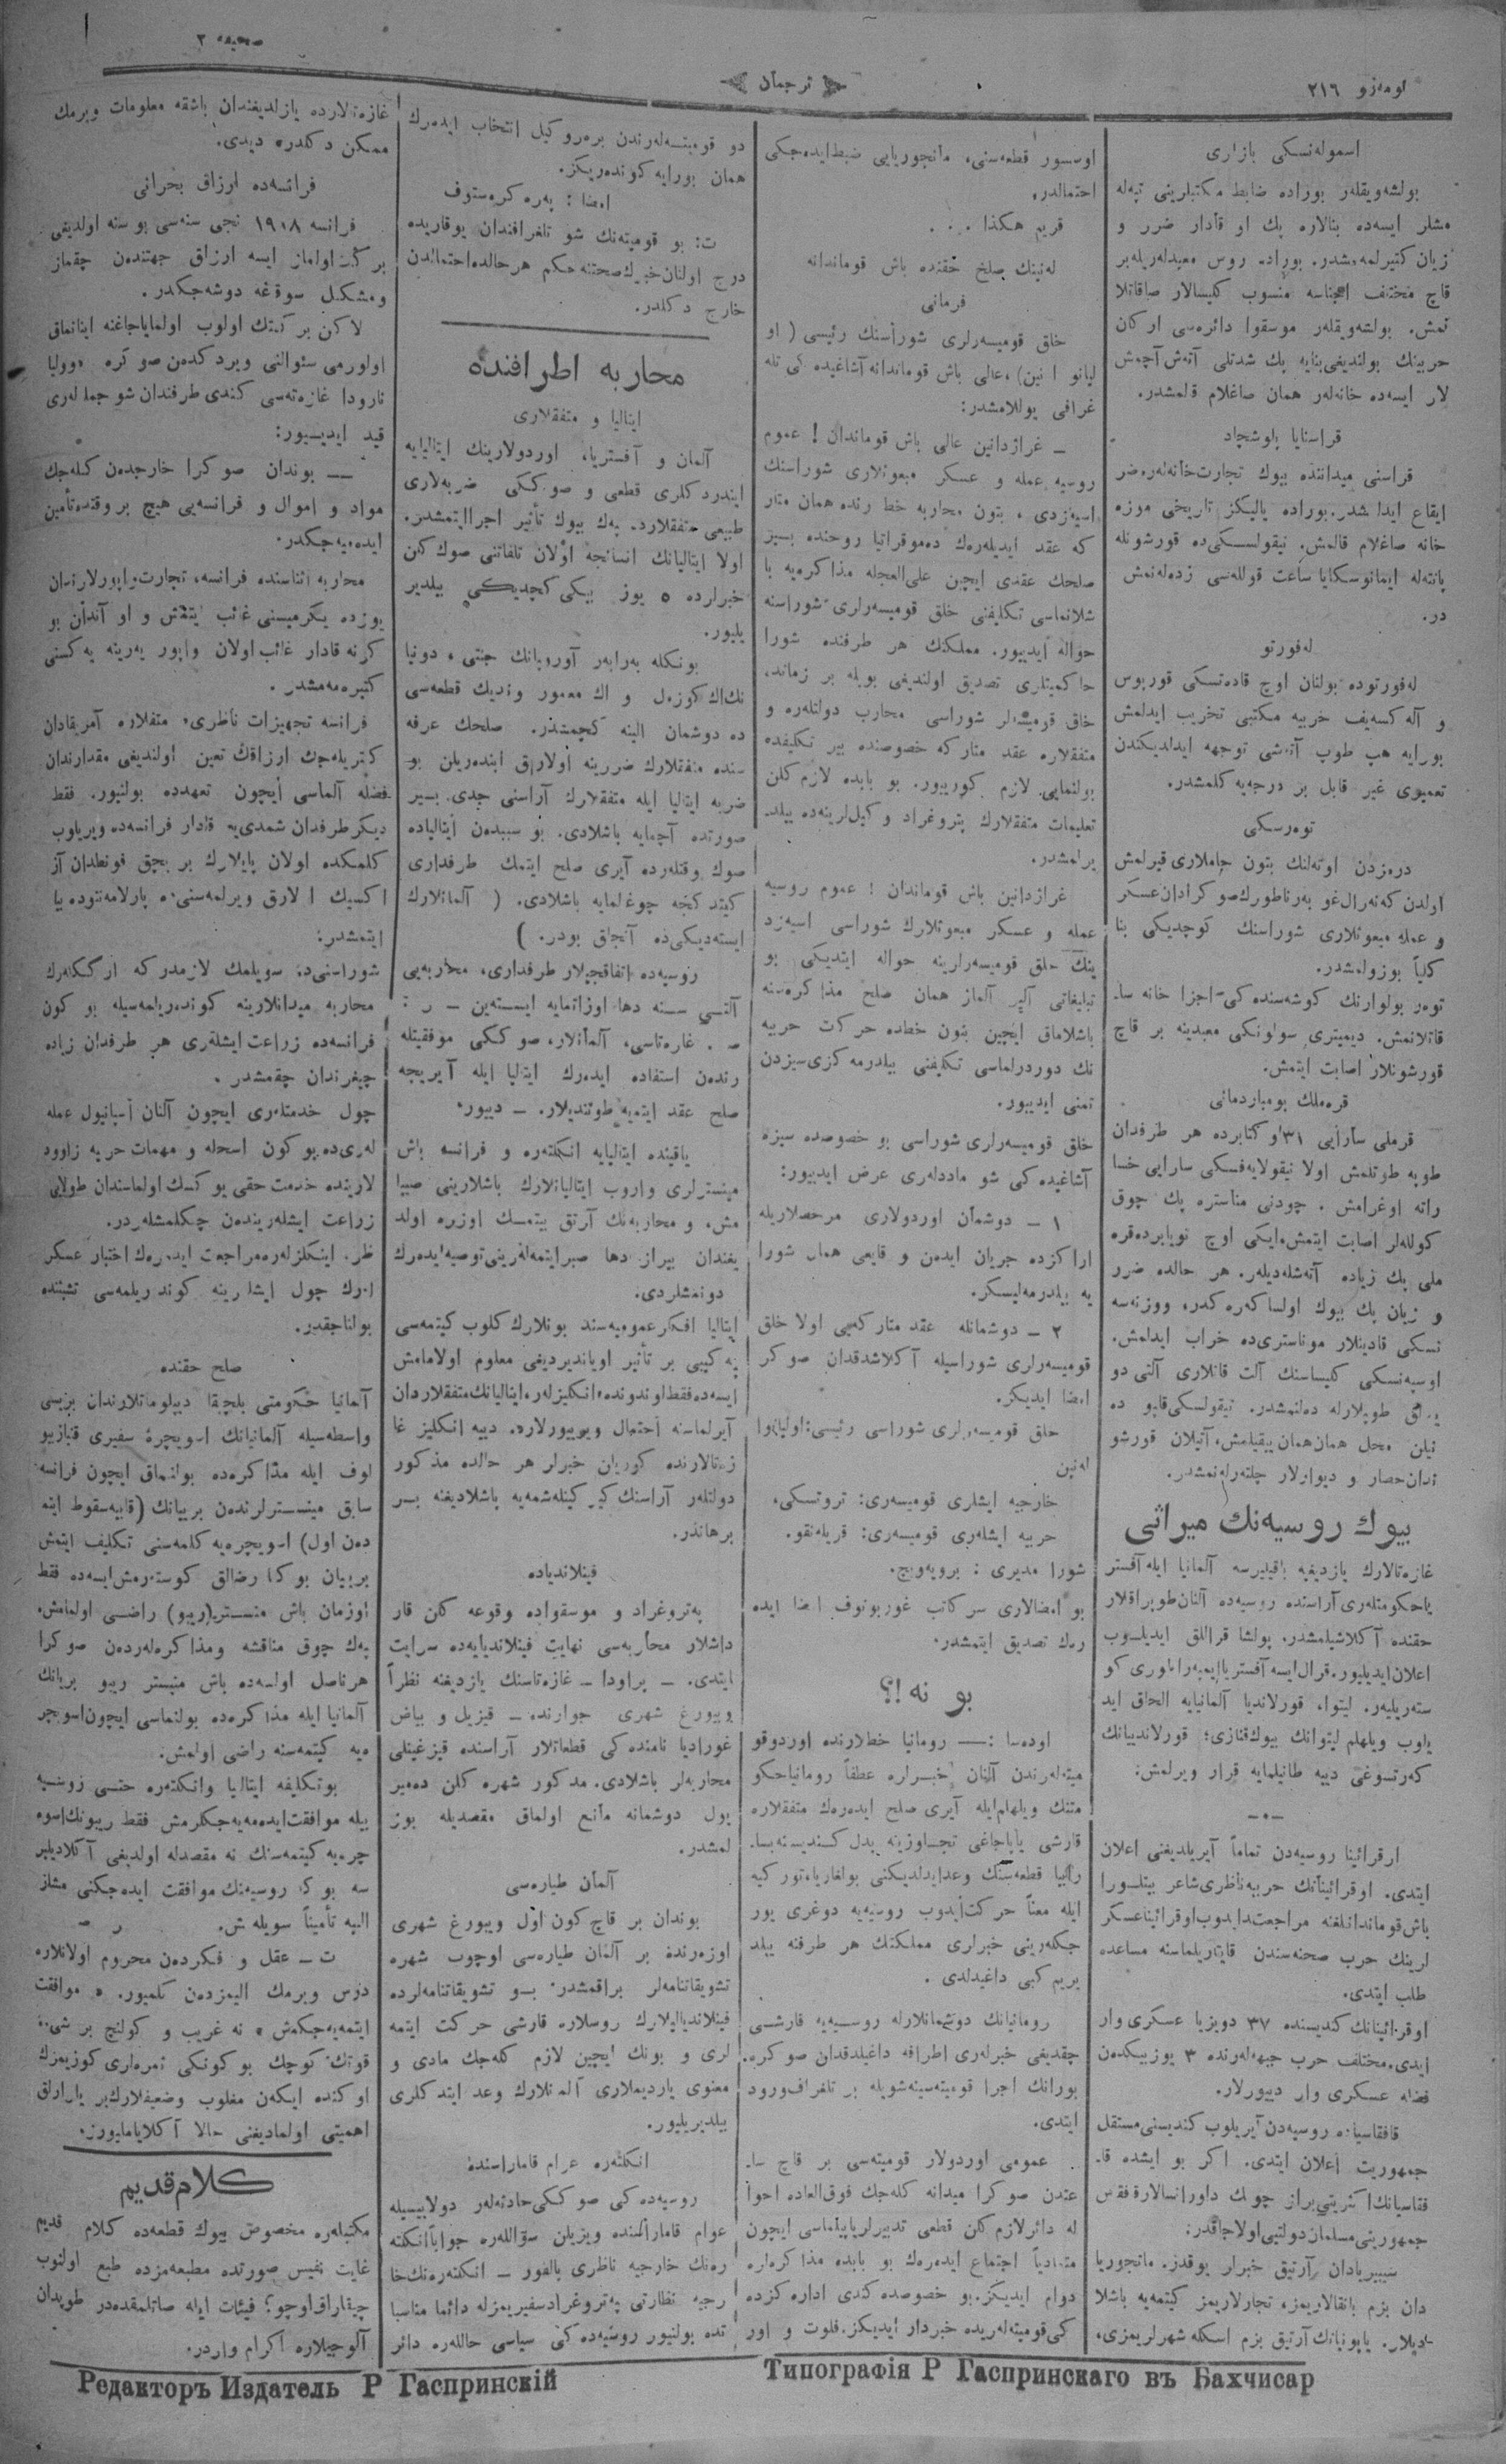 صحیفه ٢
ترجمان
نومرو ٢١٦
اسمولەنسكی بازاری
بولشەویقلەر بوراده ضابط مكتبلرینی تپەلە
مشلر ایسەده بنالاره پك او قادار ضرر و
زیان كتیرلمەمشدر. بوراده روس معبدلەریلەبر
قاچ مختلف اجناسه منسوب كلیسالار صاقاتلا
نمش. بولشەویقلەر موسقوا دائرەسی اركان
حربینك بولندیغی بنایه پك شدتلی آتەش آچمش
لار ایسەده خانەلەر همان صاغلام قالمشدر.
قراسنایا پلوشچاد
قراسنی میداننده بیوك تجارت خانەلەره ضر
ایقاع ایدلمشدر. بوراده یالیكز تاریخی موزه
خانه صاغلام قالمش. نیقولسكی ده قورشونله
در.
لەفورتو
لەفورتوده بولنان اوچ قادەتسكی قورپوس
و آلەكسەیف حربیه مكتبی تخریب ایدلمش
بورایه هپ طوپ آتەشی توجهه ایدلدیكندن
تعمیری غیر قابل بر درجەیه كلمشدر.
توەرسكی
اولدن كەنەرال غو بەرناطورك صوكرادان عسكر
و عمله مبعوثلاری شوراسنك كوچدیكی بنا
كلیاً بوزولمشدر.
توەر بولوارنك كوشەسندەكی اجزا خانه سا
قاتلانمش. دیمیتری سولونسكی معبدینه بر قاچ
قورشونلار اصابت ایتمش.
قرەملك بومباردمانی
قرملی سارایی ٣١ اوكتابرده هر طرفدان
طوپه طوتلمش اولا نیقولایەفسكی سارایی خسا
راته اوغرامش. چودنی مناستره پك چوق
كوللەلر اصابت ایتمش، ایكی اوچ نویابرده قره
ملی پك زیاده آتەشلەدیلەر. هر حالده ضرر
و زیان پك بیوك اولسا كەرەكدر، ووزنەسە
نسكی قادینلار موناستری ده خراب ایدلمش.
اوسپەنسكی كلیساسنك آلت قاتلاری آلتی دو
نیلن محل همان همان ییقیلمش، آتیلان قورشو
ندان حصار و دیوارلار چلتەرلەنمشدر.
بیوك روسیەنك میراثی
غازەتالارك یازدیغیه باقیلیرسه آلمانیا ایله آفستر
یا حكومتلەری آراسنده روسیەده آلنان طوپراقلار
حقنده آكلاشیلمشدر. پولشا قراللق ایدیلوب
اعلان ایدیلیور. قرال ایسه آفستریا ایمپەراطوری كو
ستەریلیەر. لیتوا، قورلاندیا آلمانیایه الحاق اید
یلوب ویلهلم لیتوانك بیوك قنازی؛ قورلاندییانك
كەرتسوغی دییه طانیلمایه قرار ویرلمش.
اوقرائینا روسیەدن تماماً آیریلدیغنی اعلان
ایتدی. اوقرائینانك حربیه ناظری شاعر پیتلورا
باش قوماندانلغنه مراجعت ایدوب اوقرائینا عسكر
لرینك حرب صحنەسندن قایتاریلماسنه مساعده
طلب ایتدی.
اوقرائینانك كندیسنده ٣٧ دویزیا عسكری وار
ایدی، مختلف حرب جبهەلەرنده ٣ یوز بیكدەن
فضله عسكری وار دییورلار.
قافقاسیاده روسیەدن آیریلوب كندیسنی مستقل
جمهوریت اعلان ایتدی. اكر بو ایشده قا
جمهورینی مسلمان دولتی اولاجاقدر.
سیبیریادان آرتیق خبرلر یوقدر. مانجوریا
دان بزم بانقالاریمز، تجارلاریمز كیتمەیه باشلا
دیلار. یاپونیانك آرتیق بزم اسكله شهرلریمزی،
اوسسور قطعەسنی، مانجوریایی ضبط ایدەجكی
احتمالدر.
قریم هكذا . . .
لەنینك صلح حقنده باش قومانداننه
فرمانی
خلق قومیسەرلری شوراسنك رئیسی ( او
لیانو لنین) ،عالی باش قوماندانه آشاغیدەكی تله
غرافی یوللامشدر:
ـ غراژدانین عالی باش قوماندان ! عموم
روسیه عمله و عسكر مبعوثلاری شوراسنك
اسیەزدی ، بتون محاربه خطلرنده همان متار
كه عقد ایدیلەرەك دەموقراتیا روحنده بسیز
صلحك عقدی ایچین علی العجله مذاكرەیه با
شلانماسی تكلیفنی خلق قومیسەرلری شوراسنه
حواله ایدییور. مملكتك هر طرفنده شورا
حاكمیتلری تصدیق اولندیغی بویله بر زمانده
خلق قومیسەرلر شوراسی محارب دولتلەره و
متفقلاره عقد متاركه خصوصنده بیر تكلیفده
بولنمایی لازم كورییور. بو بابده لازم كلن
تعلیمات متفقلارك پتروغراد وكیللرینەده بیلد
یرلمشدر.
غراژدانین باش قوماندان ! عموم روسیه
عمله و عسكر مبعوثلارك شوراسی اسیەزد
ینك خلق قومیسەرلرینه حواله ایتدیكی بو
تبلیغاتی آلیر آلماز همان صلح مذاكرەسنه
باشلاماق ایچین بتون خطده حركت حربیه
نك دوردرلماسی تكلیفنی بیلدرمەكزی سیزدن
تمنی ایدییور.
خلق قومیسەرلری شوراسی بو خصوصده سیزه
آشاغیدەكی شو ماددلەری عرض ایدییور:
١ ـ دوشمان اوردولاری مرخصلاریله
اراكزده جریان ایدەن و قایعی همان شورا
یه بیلدرمەلیسكز.
٢ ـ دوشمانله عقد متاركەیی اولا خلق
قومیسەرلری شوراسیله آكلاشدقدان صوكر
امضا ایدیكز.
خلق قومیسەرلری شوراسی رئیسی: اولیانوا
لەنین
خارجیه ایشلری قومیسەری: تروتسكی،
حربیه ایشلەری قومیسەری: قریلەنقو.
شورا مدیری : برویەویچ.
بو امضالاری سر كاتب غوربونوف امضا ایده
رەك تصدیق ایتمشدر.
بو نه !؟
اودەسا :ــ رومانیا خطلارنده اوردوقو
میتەلەرندن آلنان خبرلره عطفاً رومانیا حكو
متنك ویلهلم ایله آیری صلح ایدەرەك متفقلاره
قارشی یاپاجاغی تجاوزینه بدل كندیسنه بسا
رابیا قطعەسنك وعد ایدلدیكنی بولغاریا، توركیه
ایله معناً حركت ایدوب روسیەیه دوغری یور
جكلەرینی خبرلری مملكتك هر طرفنه ییلد
یریم كبی داغیدلدی.
رومانیانك دوشمانلارله روسیەیه قارشی
چقدیغی خبرلەری اطرافه داغیلدقدان صوكره
بورانك اجرا قومیتەسینه شویله بر تلغراف ورود
ایتدی.
عمومی اوردولار قومیتەسی بر قاچ سا
عتدن صوكرا میدانه كلەجك فوق العاده احوا
له دائر لازم كلن قطعی تدبیرلر یاپیلماسی ایچون
متمادیاً اجتماع ایدەرەك بو بابده مذاكرەلره
دوام ایدیكز. بو خصوصده كندی ادارەكزده
كی قومیتەلەریده خبردار ایدیكز. فلوت و اور
دو قومیتەلەرندن بررو وكیل انتخاب ایدەرك
همان بورایه كوندەریكز.
امضا : پەرەكرەستوف
ت: بو قومیتەنك شو تلغرافندان یوقاریده
درج اولنان خبرك صحتنه حكم هر حالده احتمالدن
خارج دكلدر.
محاربه اطرافنده
ایتالیا و متفقلاری
آلمان و آفستریا، اوردولارینك ایتالیایه
ایندردكلری قطعی و صوككی ضربەلاری
طبیعی متفقلارده پەك بیوك تأثیر اجرا ایتمشدر.
اولا ایتالیانك انسانجه اولان تلفاتنی صوك كلن
خبرلرده ٥ یوز بیكی كچدیكی بیلدیر
یلیور.
بونكله بەرابەر آوروپانك جنتی، دونیا
نك اك كوزەل و اك معمور وندیك قطعەسی
ده دوشمان الینه كچمشدر. صلحك عرفه
سنده متفقلارك ضررینه اولارق ایندەریلن بو
ضربه ایتالیا ایله متفقلارك آراسنی جدی بسیر
صورتده آچمایه باشلادی. بو سببدەن ایتالیاده
صوك وقتلەرده آیری صلح ایتمك طرفداری
كیتدكجه چوغلمایه باشلادی. ( آلمانلارك
ایستەدیكی ده آنجاق بودر. )
روسیەده اتفاقجیلار طرفداری، محاربەیی
آلتی سنه دها اوزاتمایه ایستەین ـ ر :
ص . غازەتاسی، آلمانلار، صوككی موفقیتله
رندەن استفاده ایدەرك ایتالیا ایله آیریجه
صلح عقد ایتمیه طوتندیلار. ـ دییور.
یاقینده ایتالیایه انكلتەره و فرانسه باش
مینسترلری واروب ایتالیانلارك باشلارینی صیپا
مش، و محاربەنك آرتق بیتمسك اوزره اولد
یغندان بیراز دها صبر ایتمەلەرینی توصیه ایدەرك
دونمشلردی.
ایتالیا افكار عمومیەسنده بونلارك كلوب كیتمەسی
نه كیبی بر تأثیر اویاندیردیغی معلوم اولمامش
ایسەده فقط لوندونده، انكلیزلەر، ایتالیانك متفقلاردان
آیرلماسنه احتمال ویرییورلاره. دییه انكلیز غا
زەتالارنده كوریلن خبرلر هر حالده مذكور
دولتلەر آراسنك كیركینلەشمەیه باشلادیغنه بر
برهاندر.
فینلاندیاده
پەتروغراد و موسقواده وقوعه كلن قار
داشلار محاربەسی نهایت فینلاندیایەده سرایت
ایتدی. ـ پراودا ـ غازەتاسنك یازدیغنه نظراً
ویبورغ شهری جوارنده ـ قیزیل و بیاض
غواردیا نامندەكی قطعاتلار آراسنده قیزغینلی
محاربەلر باشلادی. مذكور شهره كلن دەمیر
یول دوشمانه مانع اولماق مقصدیله بوز
لمشدر.
آلمان طیارەسی
بوندان بر قاچ كون اول ویبورغ شهری
اوزەرنده بر آلمان طیارەسی اوچوب شهره
تشویقاتنامەلر براقمشدر. بو تشویقاتنامەلرده
فینلاندیالیلارك روسلاره قارشی حركت ایتمه
لری و بونك ایچین لازم كلەجك مادی و
معنوی یاردیملاری آلمانلارك وعد ایتدكلری
بیلدیریلیور.
انكلتەره عوام قاماراسنده
روسیەدەكی صوككی حادثەلەر دولاییسیله
عوام قاماراسنده ویریلن سؤاللەره جواباً انكلته
رەنك خارجیه ناظری بالفور ـ انكلتەرەنك خا
رجیه نظارتی پەتروغراد سفیریمزله دائما مناسبا
تده بولنیور روسیەدەكی سیاسی حاللەره دائر
غازەتالارده یازلدیغندان باشقه معلومات ویرمك
ممكن دكلدر، دیدی.
فرانسەده ارزاق بحرانی
فرانسه ١٩١٨ نجی سنەسی بو سنه اولدیغی
بركتلی اولماز ایسه ارزاق جهتندەن چقماز
ومشكل سوقغه دوشەجكدر.
لاكن بركتك اولوب اولمایاجاغنه اینانماق
اولورمی سئوالنی ویردكدەن صوكره «وولیا
نارودا» غازەتەسی كندی طرفندان شو جملەلەری
قید ایدییور:
ــ بوندان صوكرا خارجدەن كلەجك
مواد و اموال و فرانسەیی هیچ بر وقتده تأمین
ایدەمیەجكدر.
محاربه اثناسنده فرانسه، تجارت واپورلارندان
یوزده یكرمیسنی غائب ایتمش و او آندان بو
كونه قادار غائب اولان واپور یەرینه یەكیسنی
كتیرەمەمشدر.
فرانسه تجهیزات ناظری، متفقلاره آمریقادان
كتریلەجك ارزاقك تعین اولندیغی مقداردان
فضله آلماسی ایچون تعهدده بولنیور. فقط
دیكر طرفدان شمدی یه قادار فرانسەده ویریلوب
كلمكده اولان پایلارك بر بچق فونطدان آز
اكسیك اولارق ویرلمەسنی ده پارلامەنتوده بیا
ایتمشدر:
شوراسنی ده سویلمك لازمدر كه ارككلەرك
محاربه میدانلارینه كوندەریلمەسیله بو كون
فرانسەده زراعت ایشلەری هر طرفدان زیاده
چیغرندان چقمشدر.
چول خدمتلەری ایچون آلنان اسپانیول عمله
لەری ده بو كون اسحله و مهمات حربیه زاوود
لارینده خدمت حقی یوكسك اولماسندان طولایی
زراعت ایشلەریندەن چكلمشلەردر.
ظر، اینكلزلەره مراجعت ایدەرەك اختیار عسكر
لرك چول ایشلرینه كوندریلمەسی تشبثنده
بولناجقدر.
صلح حقنده
آلمانیا حكومتی بلچیقا دیپلوماتلارندان بریسی
واسطەسیله آلمانیانك اسویچره سفیری قنازیو
لوف ایله مذاكرەده بولنماق ایچون فرانسه
سابق مینسترلرندەن بریانك (قابینه سقوط ایته
دەن اول) اسویچرەیه كلمەسنی تكلیف ایتمش
بریان بوكا رضالق كوسترمش ایسەده فقط
اوزمان باش منستر(ریبو) راضی اولمامش.
پەك چوق مناقشه ومذاكرەلەردەن صوكرا
هرناصل اولسەده باش منیستر ریبو بریانك
آلمانیا ایله مذاكرەده بولنماسی ایچون اسویچر
ەیه كیتمەسنه راضی اولمش.
بوتكلیفه ایتالیا وانكلتەره حتی روسیه
بیله موافقت ایدەمەیەجكلرمش فقط ریبونك اسوه
چرەیه كیتمەسنك نه مقصدله اولدیغی آكلادیلیر
سه بوكا روسیەنك موافقت ایدەجكنی مشار
الیه تأمیناً سویلەمش.
ت ـ عقل و فكردەن محروم اولانلاره
درس ویرمك الیمزدەن كلمیور. « موافقت
ایتمەیەجكمش » نه غریب و كولنج بر شی.
قوتك، كوچك بو كونكی ثمرەلری كوزیمزك
اوكنده ایكەن مغلوب وضعیفلارك بر پارالق
اهمیتی اولمادیغنی حالا آكلایامایورز.
كلام قدیم
مكتبلەره مخصوص بیوك قطعەده كلام قدیم
غایت نفیس صورتده مطبعەمزده طبع اولنوب
چیقاریلوچو؟ فیئات ایله صاتلمقدەدر طوپدان
آلوجیلاره اكرام واردر.
Редакторъ Издатель Р Гаспринскій
Типографія Р Гаспринскаго въ Бахчисар